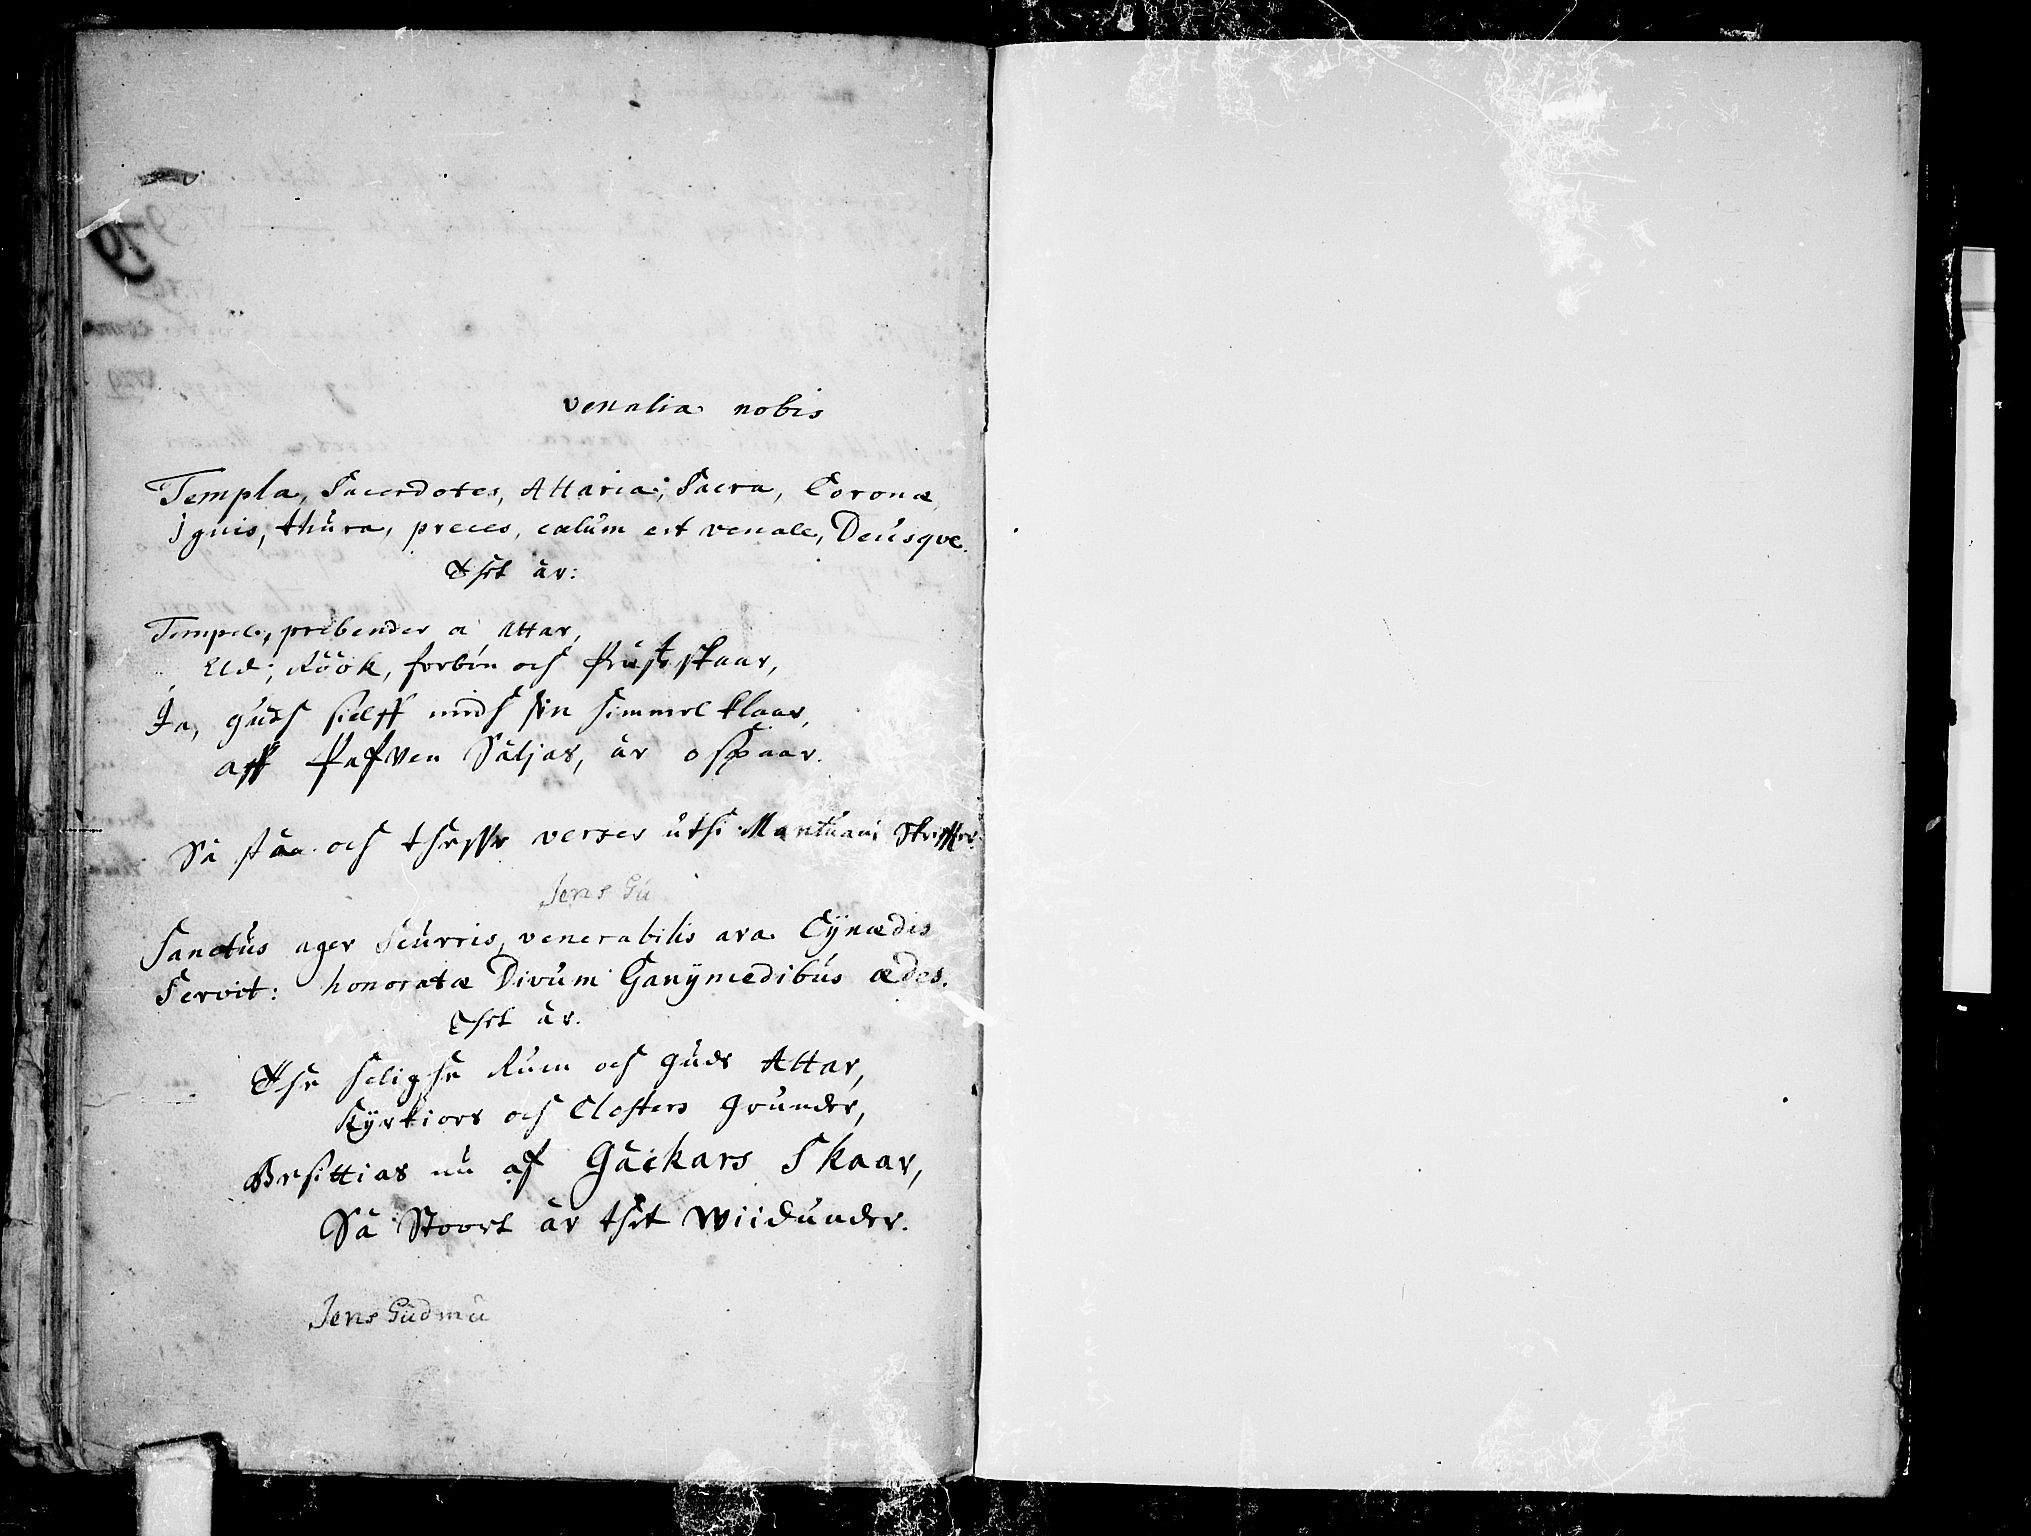 venalia nobis
Templa, Sacerdotes, Altaria; Sacra, Coronæ,
Ignis, thura, preces, cælum est venale, Deusqve.
Thet är:
Tempel, prebender a Altar,
Eld, Röök, forbön och Prestskaar,
Ja, Gudh sielff medh sin himmel klaar,
aff Pafven Säljas, är ospaar.
Så stäa och thesse verser uthi Mantuani skriffter.
Jens Gu
Sanctus ager Scurris, venerabilis ara Cynædis
Servit: honoratæ Divum Ganymedibus ædes.
Thet är.
The helighe Rum och Guds Altar,
Kyrkiors och Closters Grunder,
Besittias nu af Gäckars Skaar,
Så Stoort är thet Wiidunder.
Jens Gudmu